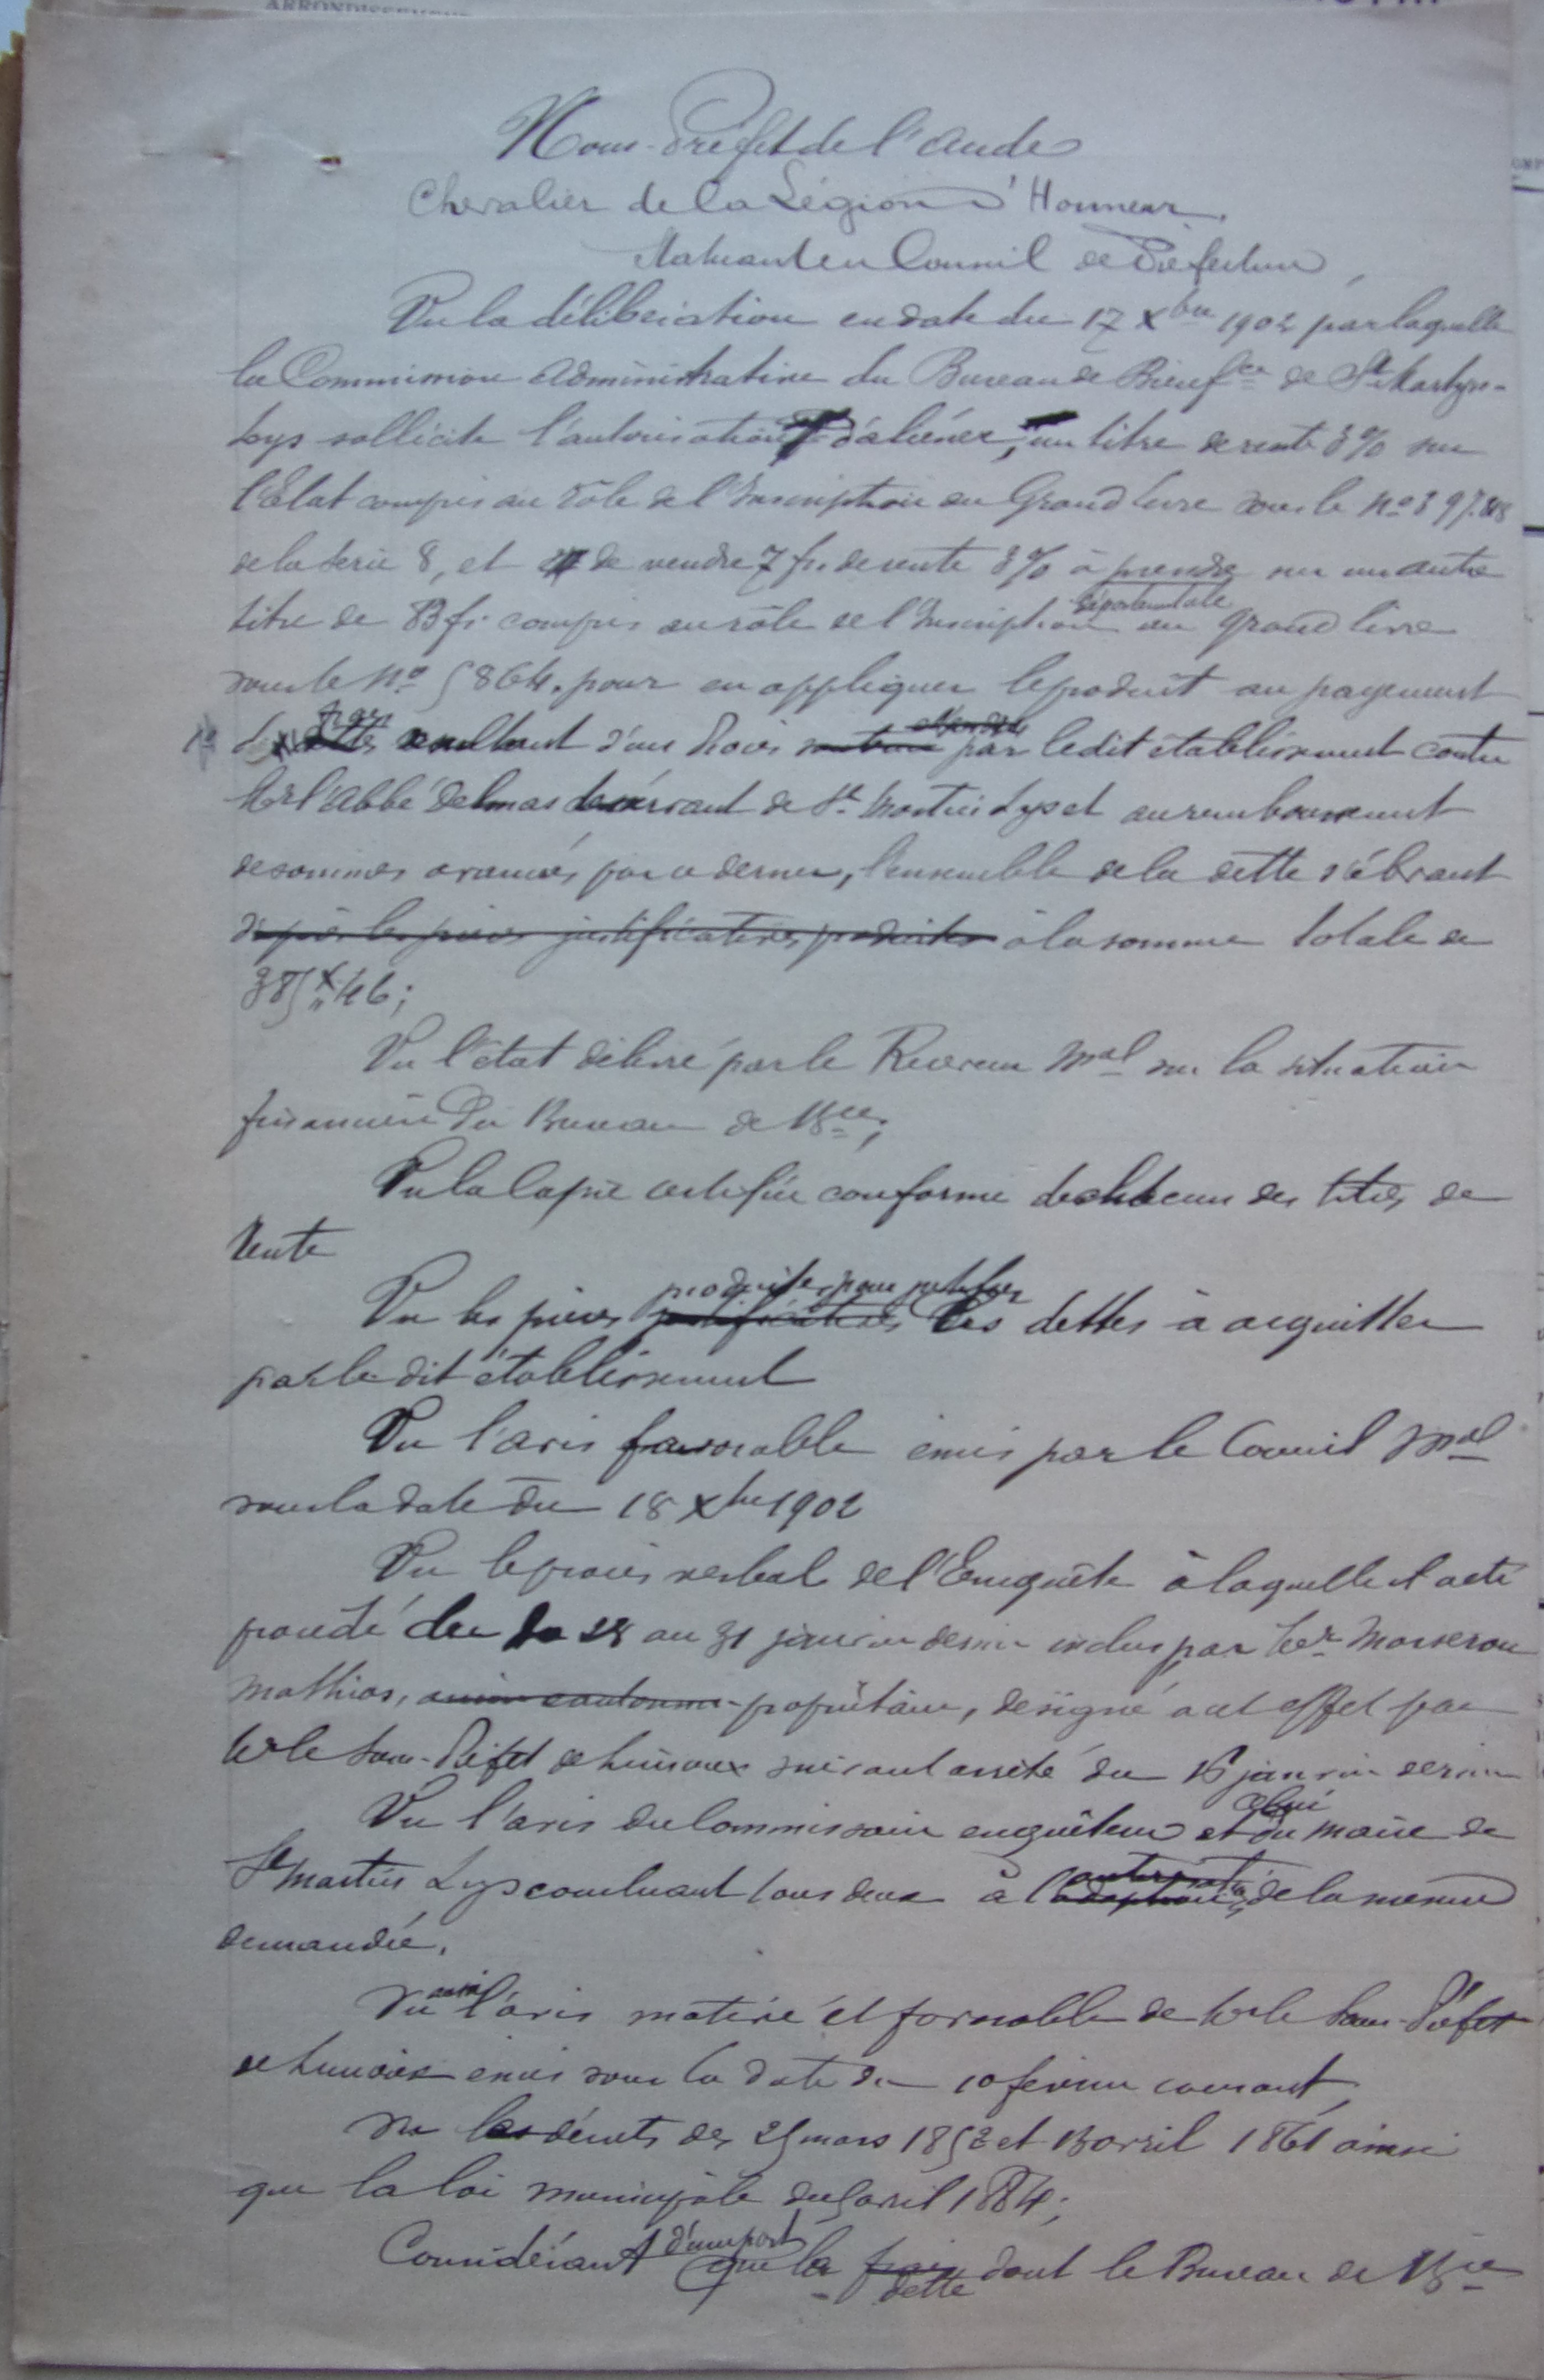 ARRONDISSEMENT
Nous Préfet de l'Aude
Chevalier de la Légion d'Honneur
Statuant en Conseil de Préfecture,
Vu la délibération en date du 17 Xbre 1902 par laquelle
la Commission Administrative du Bureau de Bienfce de St Martyn-
Lys sollicite l'autorisation d'aliéner, un titre de rente 3% sur
l'Etat compris au rôle de l'Inscription au Grand Livre sous le No
de la serie 8, et de vendre 7 fr. de rente 3% à prendre sur un autre
départementale
titre de 83 fr. compris au rôle de l'Inscription au grand livre
sous le No 5864, pour en appliquer le produit au payement
frais
1o dettes resultant d'un Procès par ledit établissement contre
Mr l'abbé Delmas desservant de St Martin Lys et au remboursement
de sommes avancées par ce dernier, l'ensemble de la dette s'élevant
d'après les pièces justificatives produites à la somme totale de
385f,46;
Vu l'état délivré par le Receveur Mal sur la situation
financière du Bureau de Bce;
Vu la Copie certifiée conforme de chacun des titres de
Rente
produites pour justifier
Vu les pièces justificatives les dettes à acquitter
par le dit établissement
Vu l'avis favorable émis par le Conseil Mal
sous la date du 18 Xbre 1902
Vu le procès verbal de l'Enquête à laquelle il a été
procédé du au 31 janvier dernier inclus par Mr
Mathias, propriétaire, désigné à cet effet par
Mr le Sous-Préfet de Limoux suivant arrêté du 16 janvier dernier
celui
Vu l'avis du Commissaire enquêteur et du maire de
St Martin Lys concluant tous deux à l'adoption de la mesure
autorisation
demandée.
aussi
Vu l'avis motivé et favorable de Mr le Sous-Préfet
de Limoux émis sous la date du 10 février courant
Vu les décrets des 25 mars 1852 et 13 avril 1861 ainsi
que la loi municipale du 5 avril 1884;
d'une part
Considérant que la frais dont le Bureau de Bce
dette